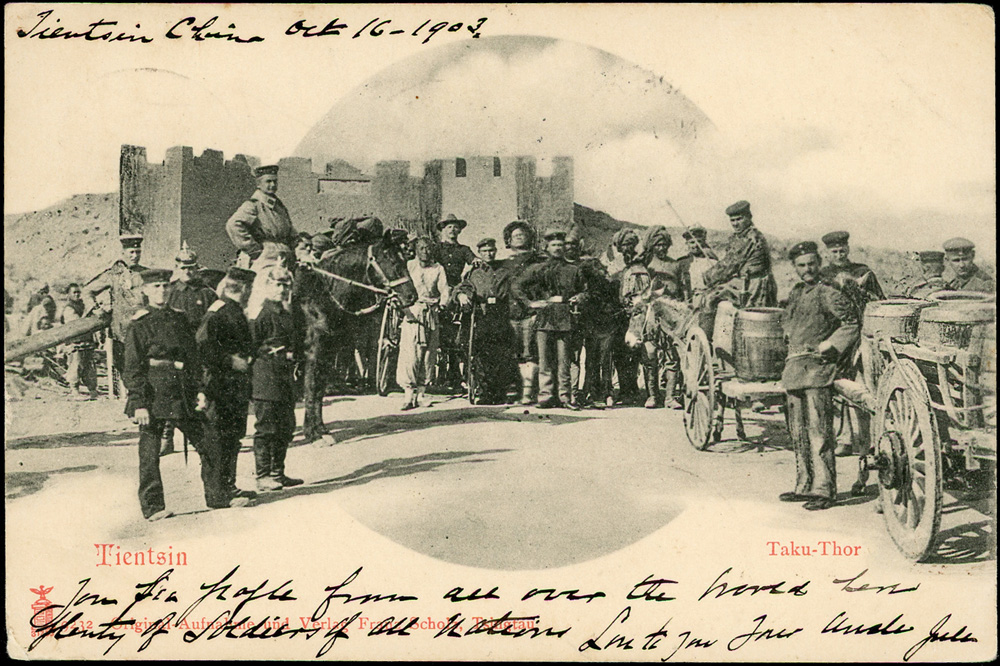 Tientsin China Oct 16-1903.
Tientsin
Taku-Thor
You see people from all over the World here
Original-Aufnahme und Verlag Franz Scholz, Tsingtau
Plenty of Soldiers of all Nations Love to you Your Uncle